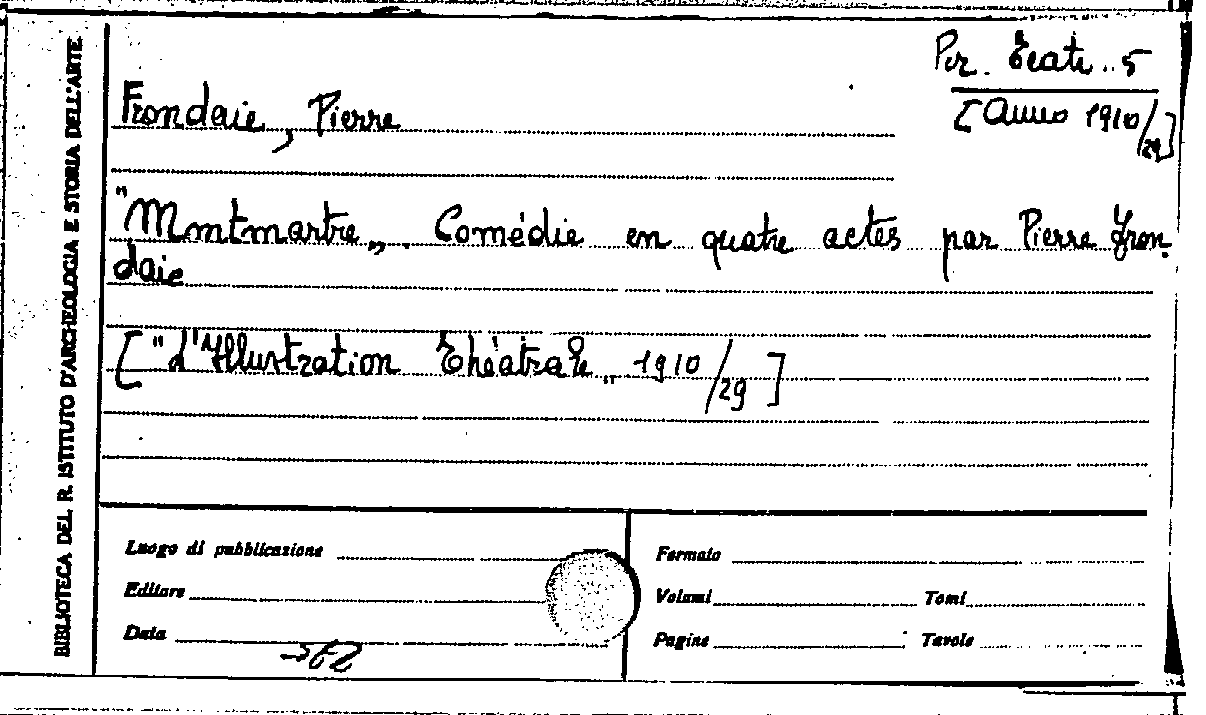 Per. Teatr.. 5
[Anno 1910/29]
Frondaie, Pierre
"Montmartre„. Comédie en quatre actes par Pierre Fron
daie
["L'Illustration Théatrale„ 1910/29]
BIBLIOTECA DEL R. ISTITUTO D'ARCHEOLOGIA E STORIA DELL'ARTE
Luogo di pubblicazione
Formato
Editore
Volumi Tomi
Data
Pagine Tavole